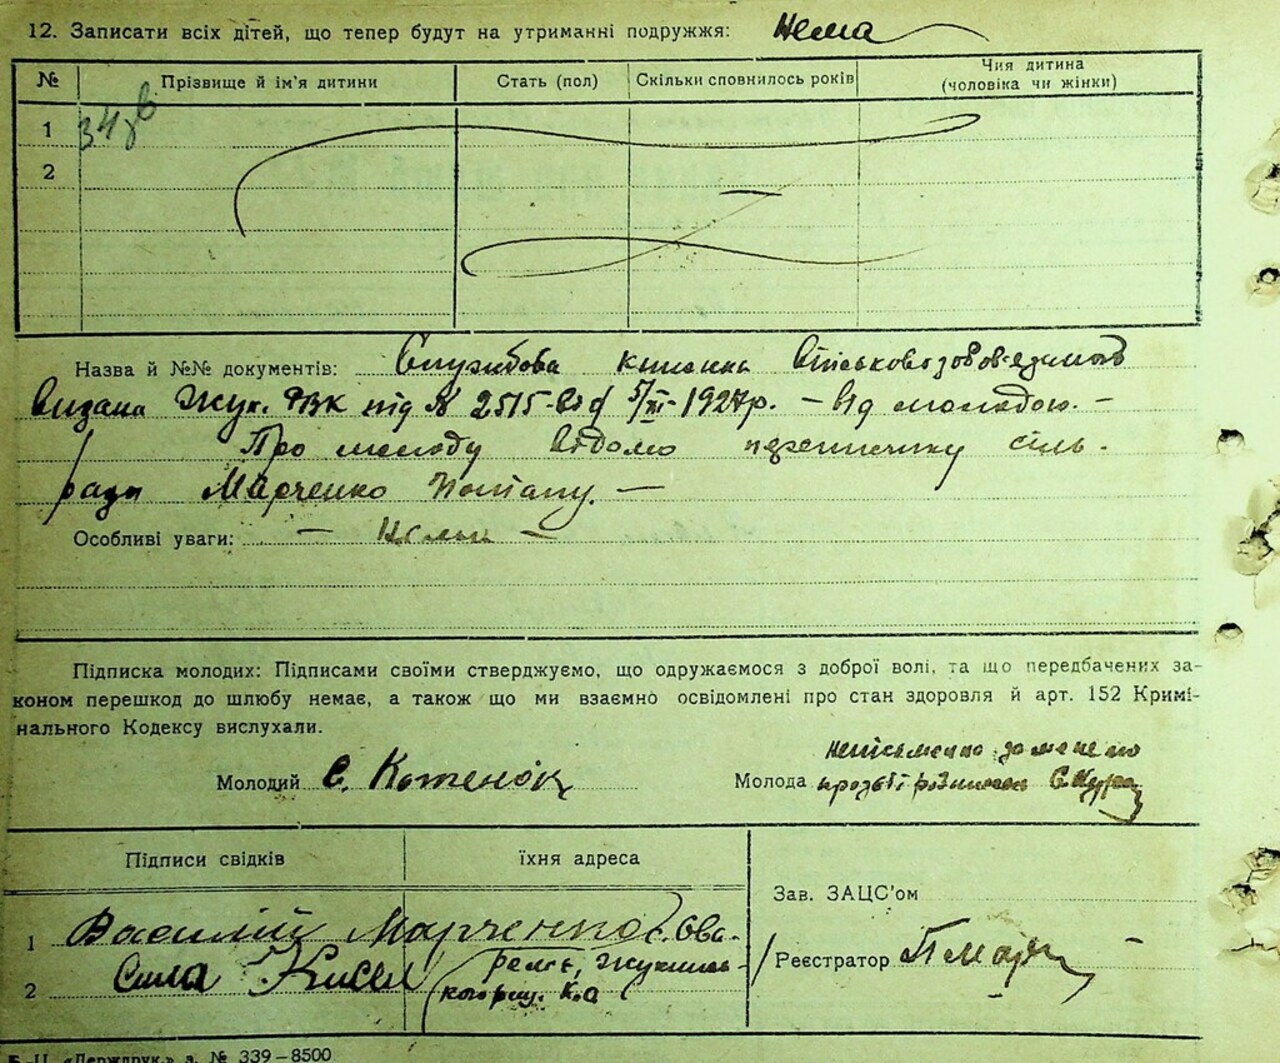 12. Записати всіх дітей, що тепер будут на утриманні подружжя: Нема
№ Прізвище й ім'я дитини Стать (пол) Скільки сповнилось років Чия дитина (чоловіка чи жінки)
1
2
Назва й №№ документів: Службова книжка Військовозобов'язаного
Видана Жук. РВК під № 2515 від 5/III-1927р. – Від молодою. –
Про молоду відомо сіль-
ради Марченко Потапу. –
Особливі уваги: – Нема –
Підписка молодих: Підписами своїми стверджуємо, що одружаємося з доброї волі, та що передбачених за-
коном перешкод до шлюбу немає, а також що ми взаємно освідомлені про стан здоровля й арт. 152 Кримі-
нального Кодексу вислухали.
неписьменна за мене по
Молодий С. Коженок Молода прозьбі
Підписи свідків їхня адреса
Зав. ЗАЦС'ом
1 Василій Марченко с. Ова-
2 Сила Кисел ремб, Жуклинсь-
Реєстратор ПМар
кого К.О
Б.-Ц. «Держдрук.» з. № 339–8500